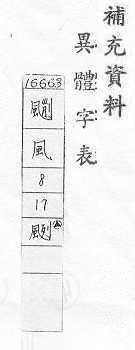 補充資料
異體字表
16663
風
8
17
颲